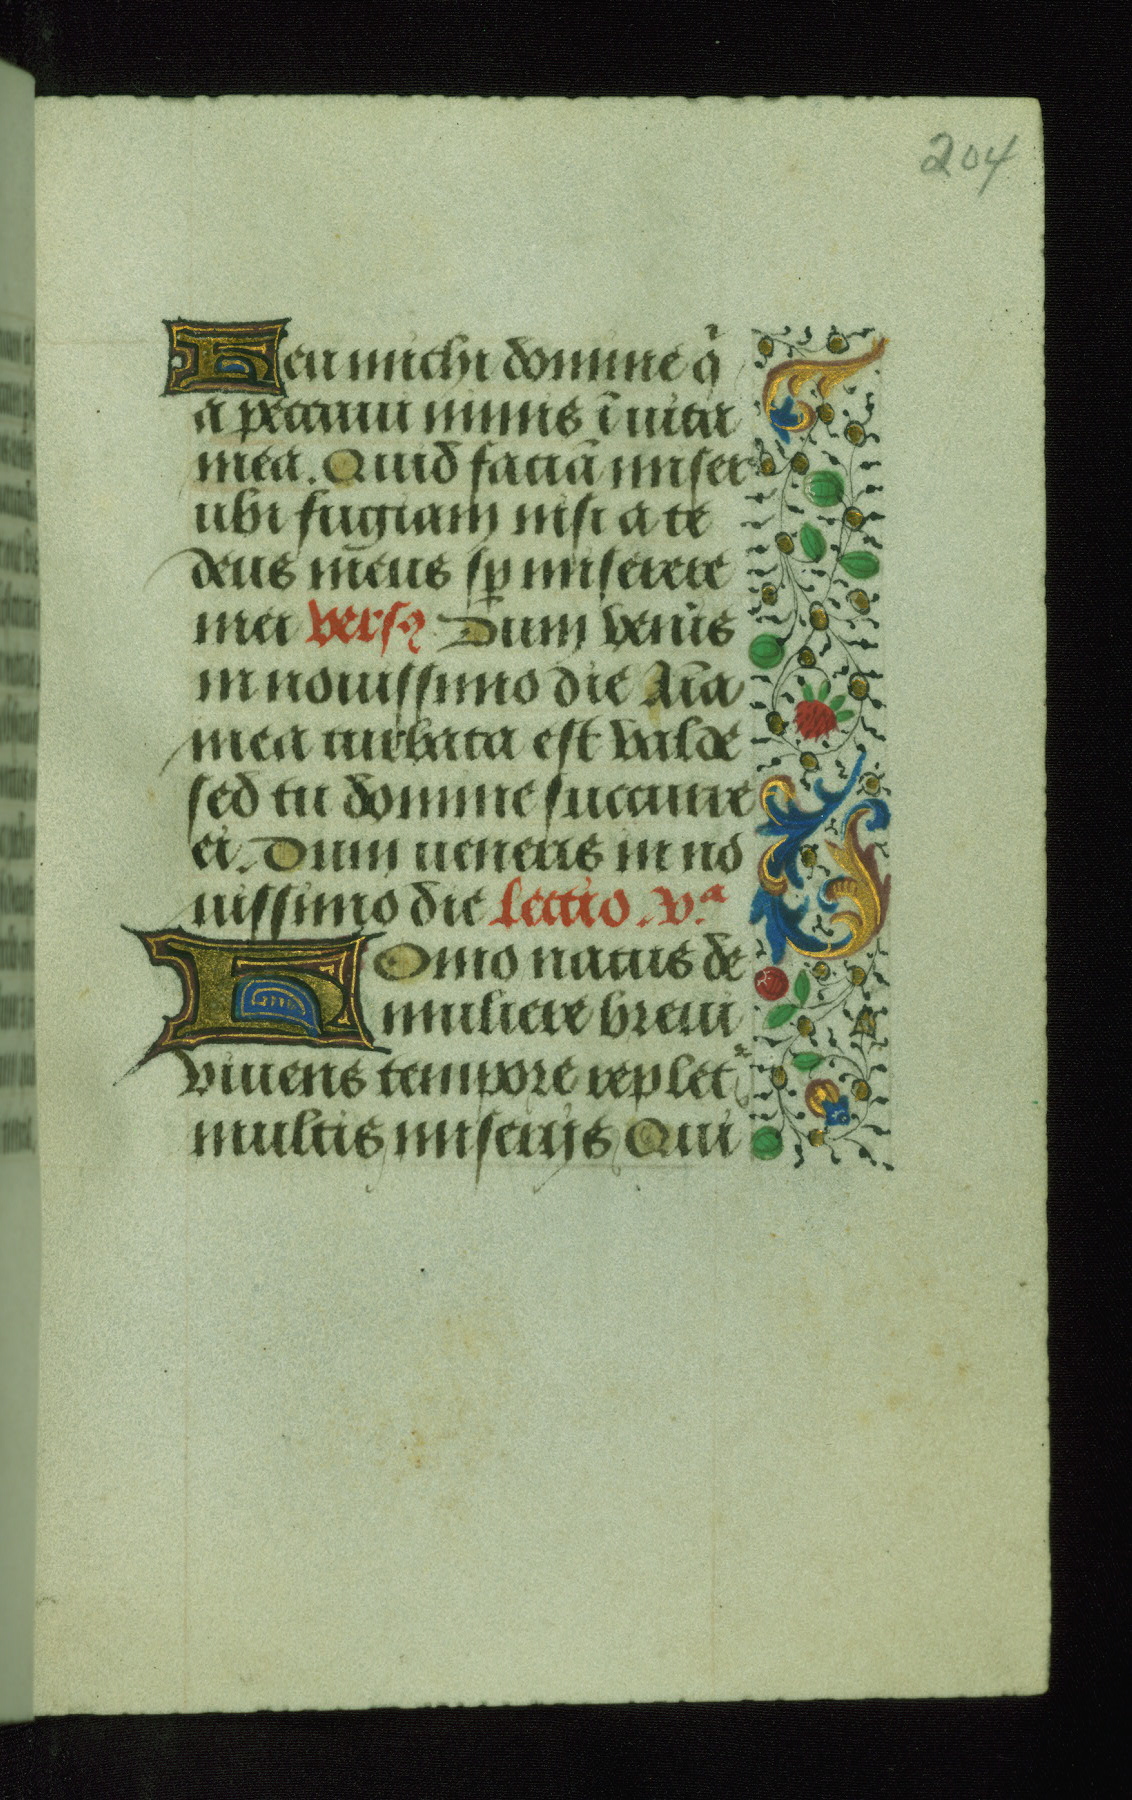 204
Heu michi domine q̃
a peccaui nimis ĩ uita
mea. Quid faciã miser
ubi fugiam nisi a te
deus meus sp̃ miserere
mei versꝰ Dum venis̃
in nouissimo die Aĩa
mea turbata est valde
sed tu domine succurre
ei. Dum ueneris in no
uissimo die Lectio .v.ᵃ
Homo natus de
muliere breui
viuens tempore replet᷑
multis miserijs Qui